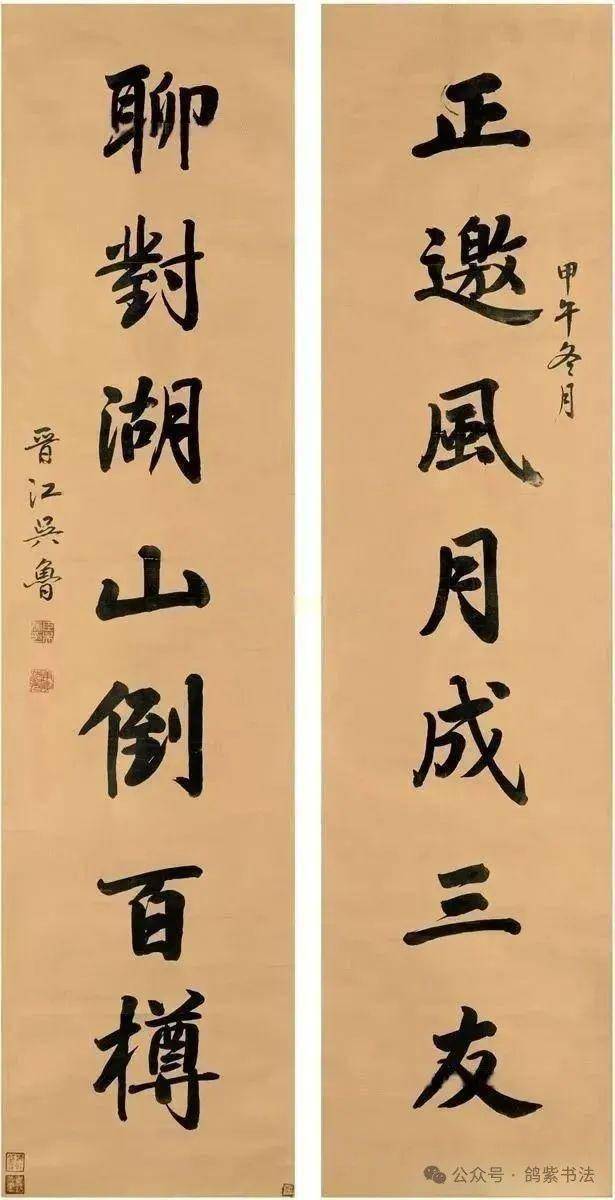 正邀風月成三友
甲午冬月
聊對湖山倒百樽
晋江吳魯
公众号·鸽紫书法